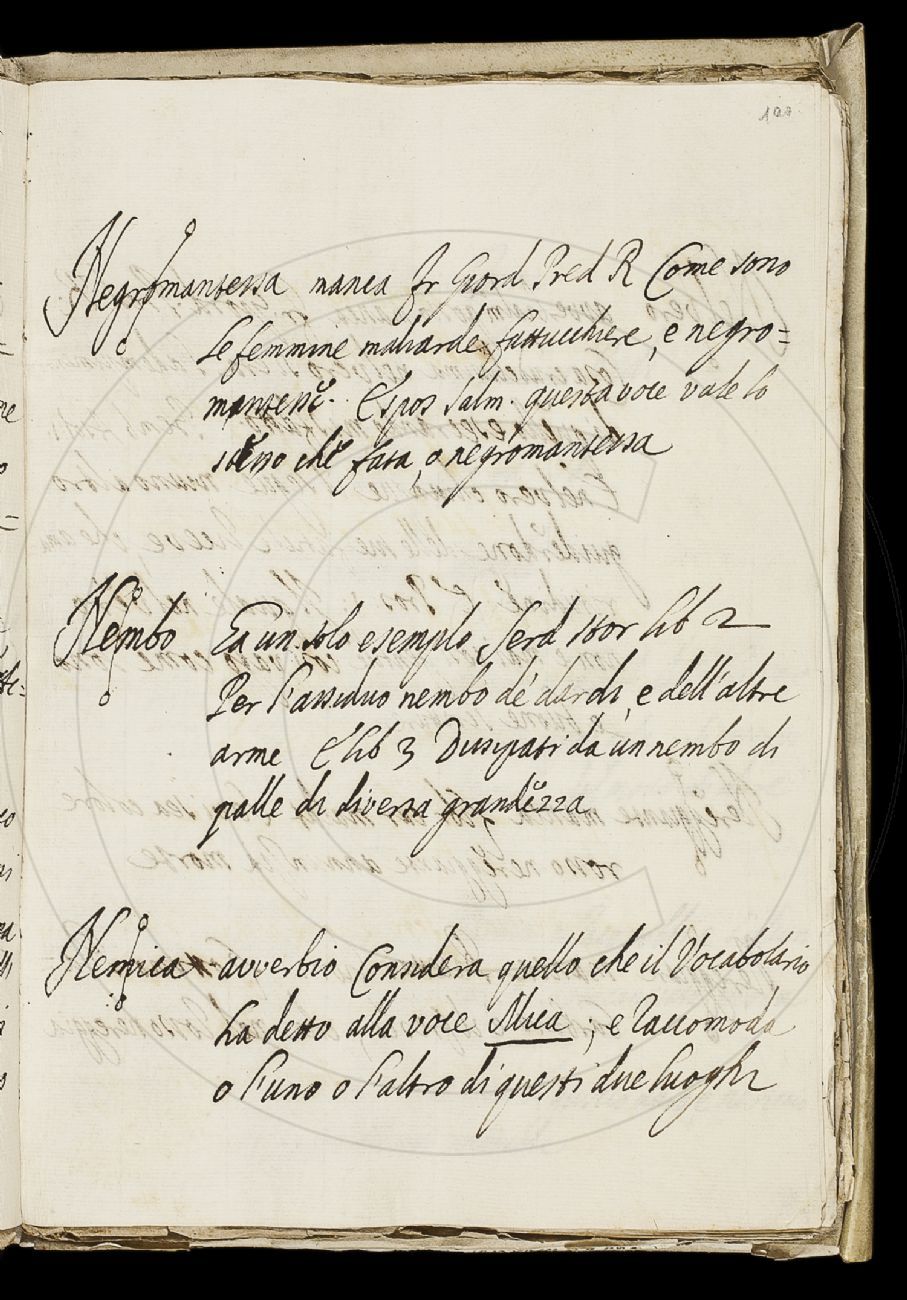 100
Negromantessa manca Fr Giord Pred R Come sono
le femmine maliarde fattucchiere, e negro=
mantesse. Espos Salm. questa voce vale lo
stesso che fata, o negromantessa
Nembo Ea un solo esempio Serd stor lib 2
Per l'assiduo nembo de' dardi, e dell'altre
arme E lib 3 Dissipati da un nembo di
palle di diversa grandezza
Nemica avverbio Considera quello che il Vocabolario
ha detto alla voce Mica; e raccomoda
o l'uno o l'altro di questi due luoghi